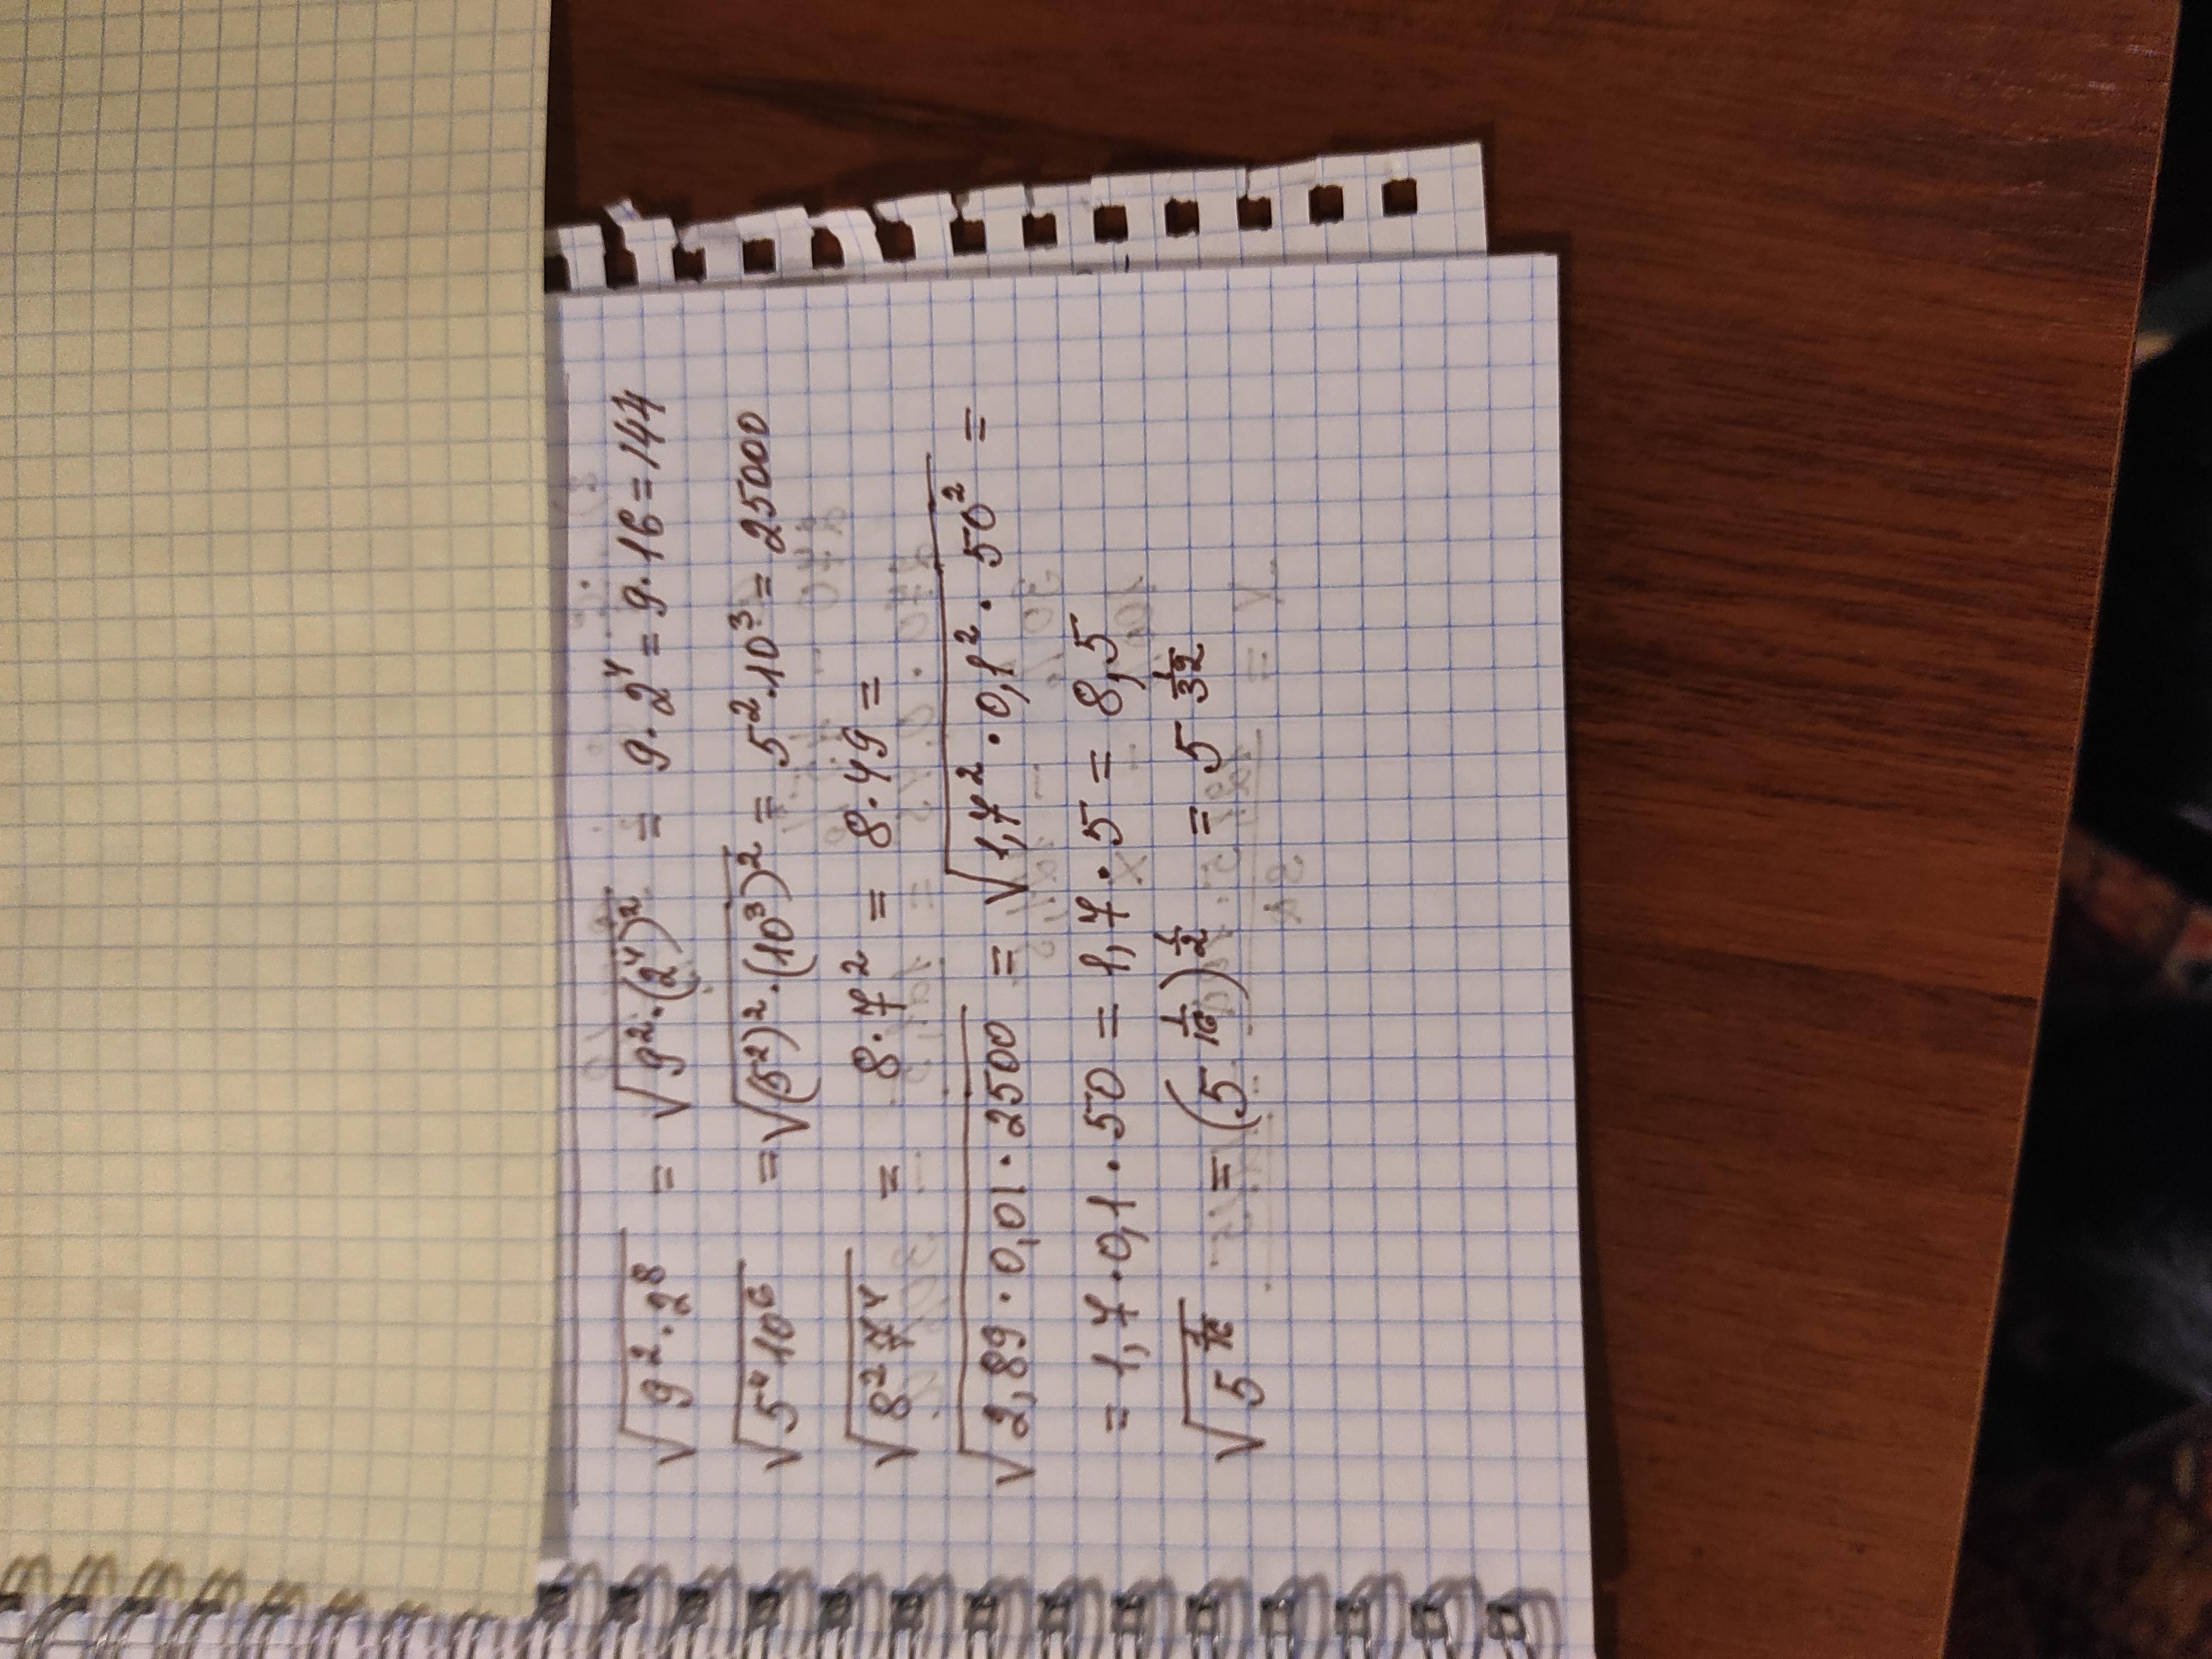 √(9²·2⁸) = √(9²·(2⁴)²) = 9·2⁴ = 9·16 = 144
√(5⁴10⁶) = √((5²)²·(10³)²) = 5²·10³ = 25000
√(8²7⁴) = 8·7² = 8·49 =
√(2,89·0,01·2500) = √(1,7²·0,1²·50²) =
= 1,7·0,1·50 = 1,7·5 = 8,5
√(5^(1/16)) = (5^(1/16))^(1/2) = 5^(1/32)